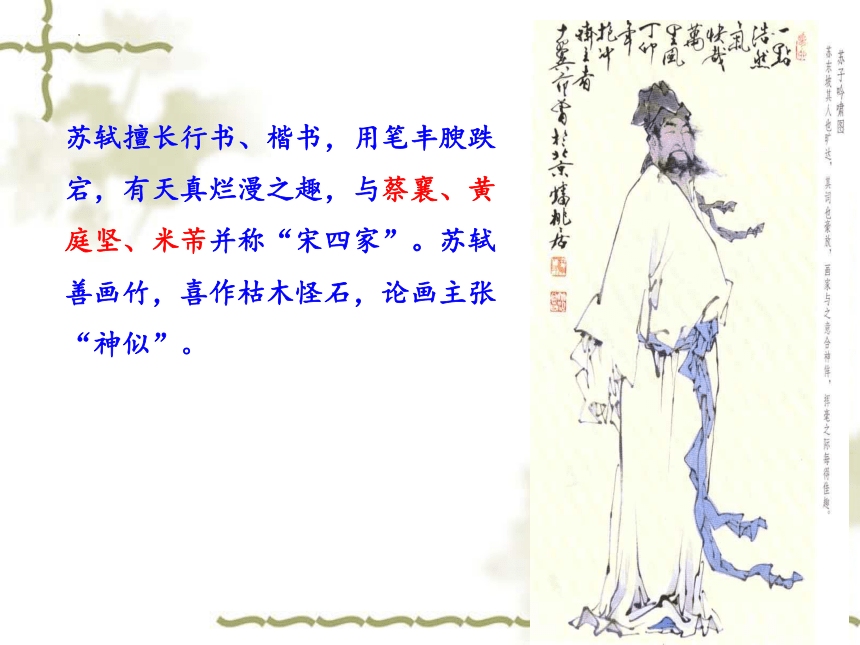 苏轼擅长行书、楷书，用笔丰腴跌
宕，有天真烂漫之趣，与蔡襄、黄
庭坚、米芾并称“宋四家”。苏轼
善画竹，喜作枯木怪石，论画主张
“神似”。
一點
浩然
氣
快哉
萬
里風
丁卯
年
抱冲
齋主者
十翼范曾於北京
苏子吟啸图
苏东坡其人也旷达，其词也豪放，画家与之竟合神伴，挥毫之际每得佳趣。